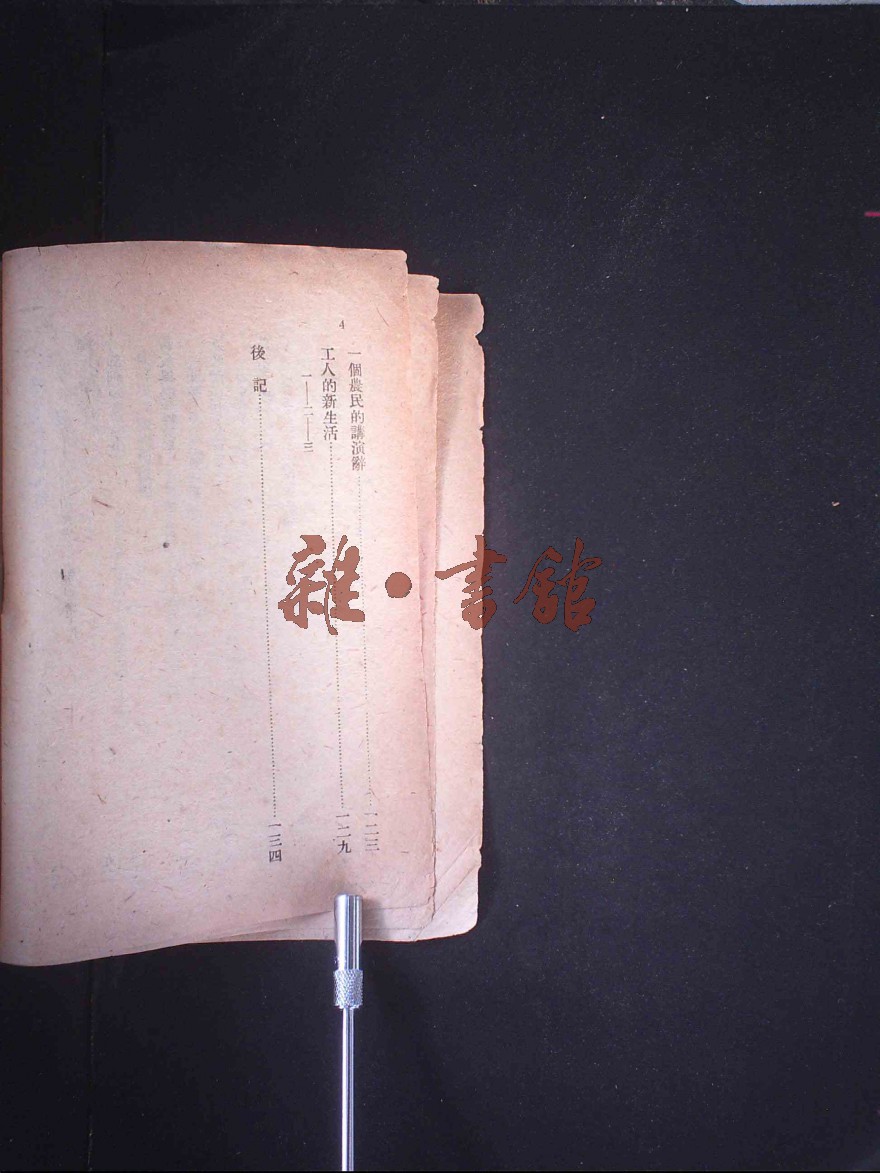 4
一個農民的講演辭……一二三
工人的新生活……一二九
一——二——三
後記……一三四
雜·書館